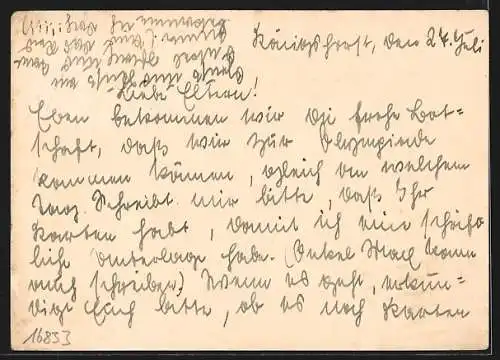 Königshorst, den 24. Juli
Liebe Eltern!
Eben bekommen wir die frohe Bot-
schaft, daß wir zur Olympiade
kommen können, gleich an welchem
Tag. Schreibt mir bitte, daß Ihr
Karten habt, damit ich eine schrift-
liche Unterlage habe. (Onkel Max kann
auch schreiben.) Wenn es geht, erkun-
digt Euch bitte, ob es noch Karten
16833